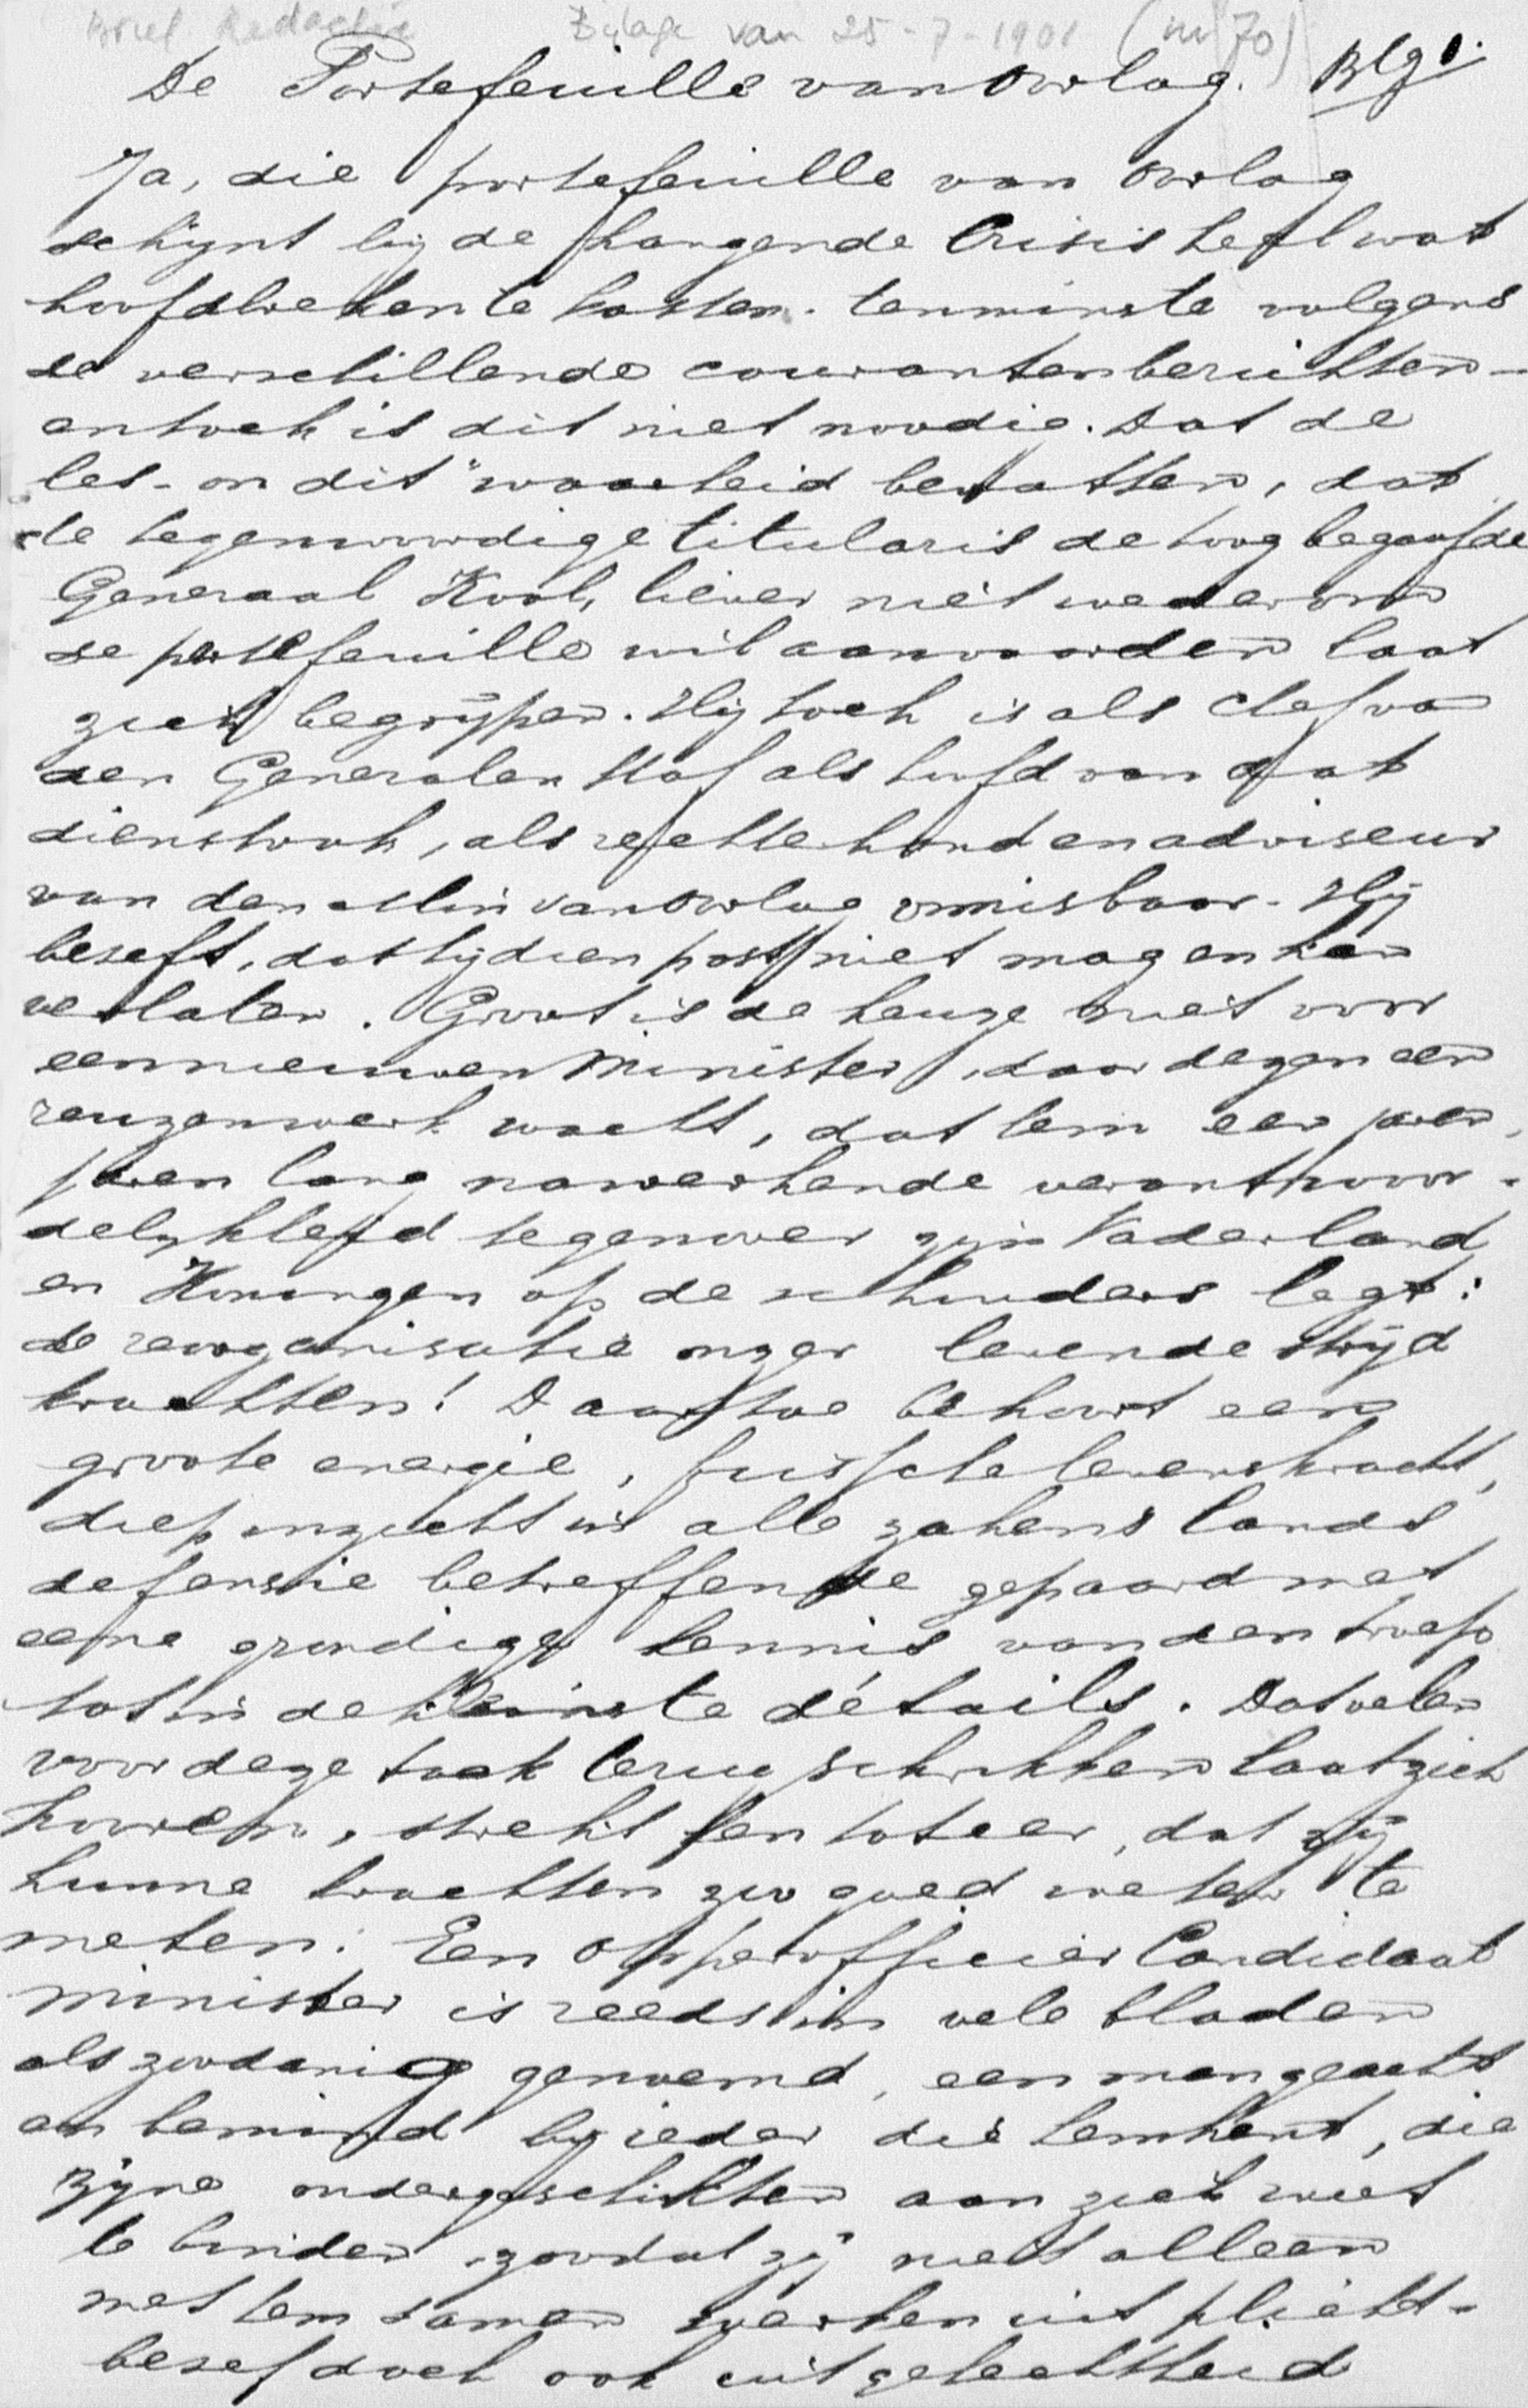 Brief Redactie Bijlage van 25-7-1901 (nr 70)
De Portefeuille van Oorlog. Blg 1.
Ja, die portefeuille van Oorlog
schijnt bij de hangende Crisis heel wat
hoofdbreken te kosten. tenminste volgens
de verschillende courantenberichten -
en toch is dit niet noodig. Dat de
les-on dit" waarheid bevatten, dat
de tegenwoordige titularis de hoog begaafde
Generaal Kool, liever niet wederom
de portefeuille wil aanvaarden laat
zich begrijpen. Hij toch is als Chef van
den Generalen Staf als hoofd van dat
dienstvak, als rechterhand en adviseur
van den Min van Oorlog onmisbaar. Hij
beseft, dat hij dien post niet mag en kan
verlaten. Groot is de keuze niet voor
een nieuwen Minister, daar dezen een
reuzenwerk wacht, dat hem een jaren,
jaren lang nawerkende verantwoor-
delijkheid tegenover zijn Vaderland
en Koningin op de schouders legt:
de reorganisatie onzer levende strijd
krachten! Daartoe behoort een
groote energie, frissche levenskracht,
diep inzicht in alle zaken 's lands
defensie betreffende gepaard met
eene grondige kennis van den troep
tot in de kleinste détails. Dat velen
voor deze taak terugschrikken laat zich
hooren, strekt hen tot eer, dat zij
hunne krachten zoo goed weten te
meten. Een Opperofficier Candidaat
minister is reeds in vele bladen
als zoodanig genoemd, een man geacht
en bemind bij ieder die hem kent, die
zijne ondergeschikten aan zich weet
te binden zoodat zij niet alleen
met hem samen werken uit plicht-
besef doch ook uit gehechtheid